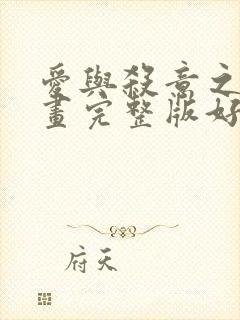 愛與殺意之
畫完整版好
府天